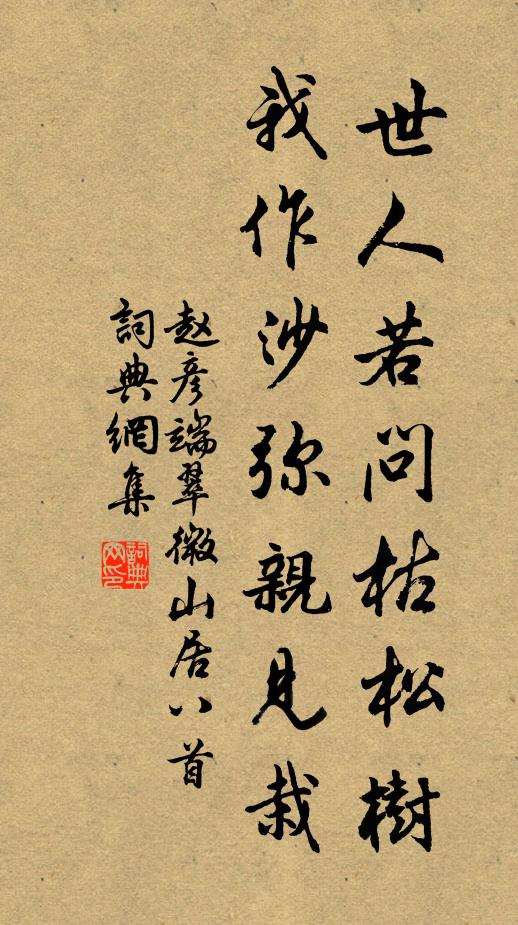 世人若问枯松樹
我作沙弥親見栽
赵彦端翠微山居八首
詞典網集
詞典网印